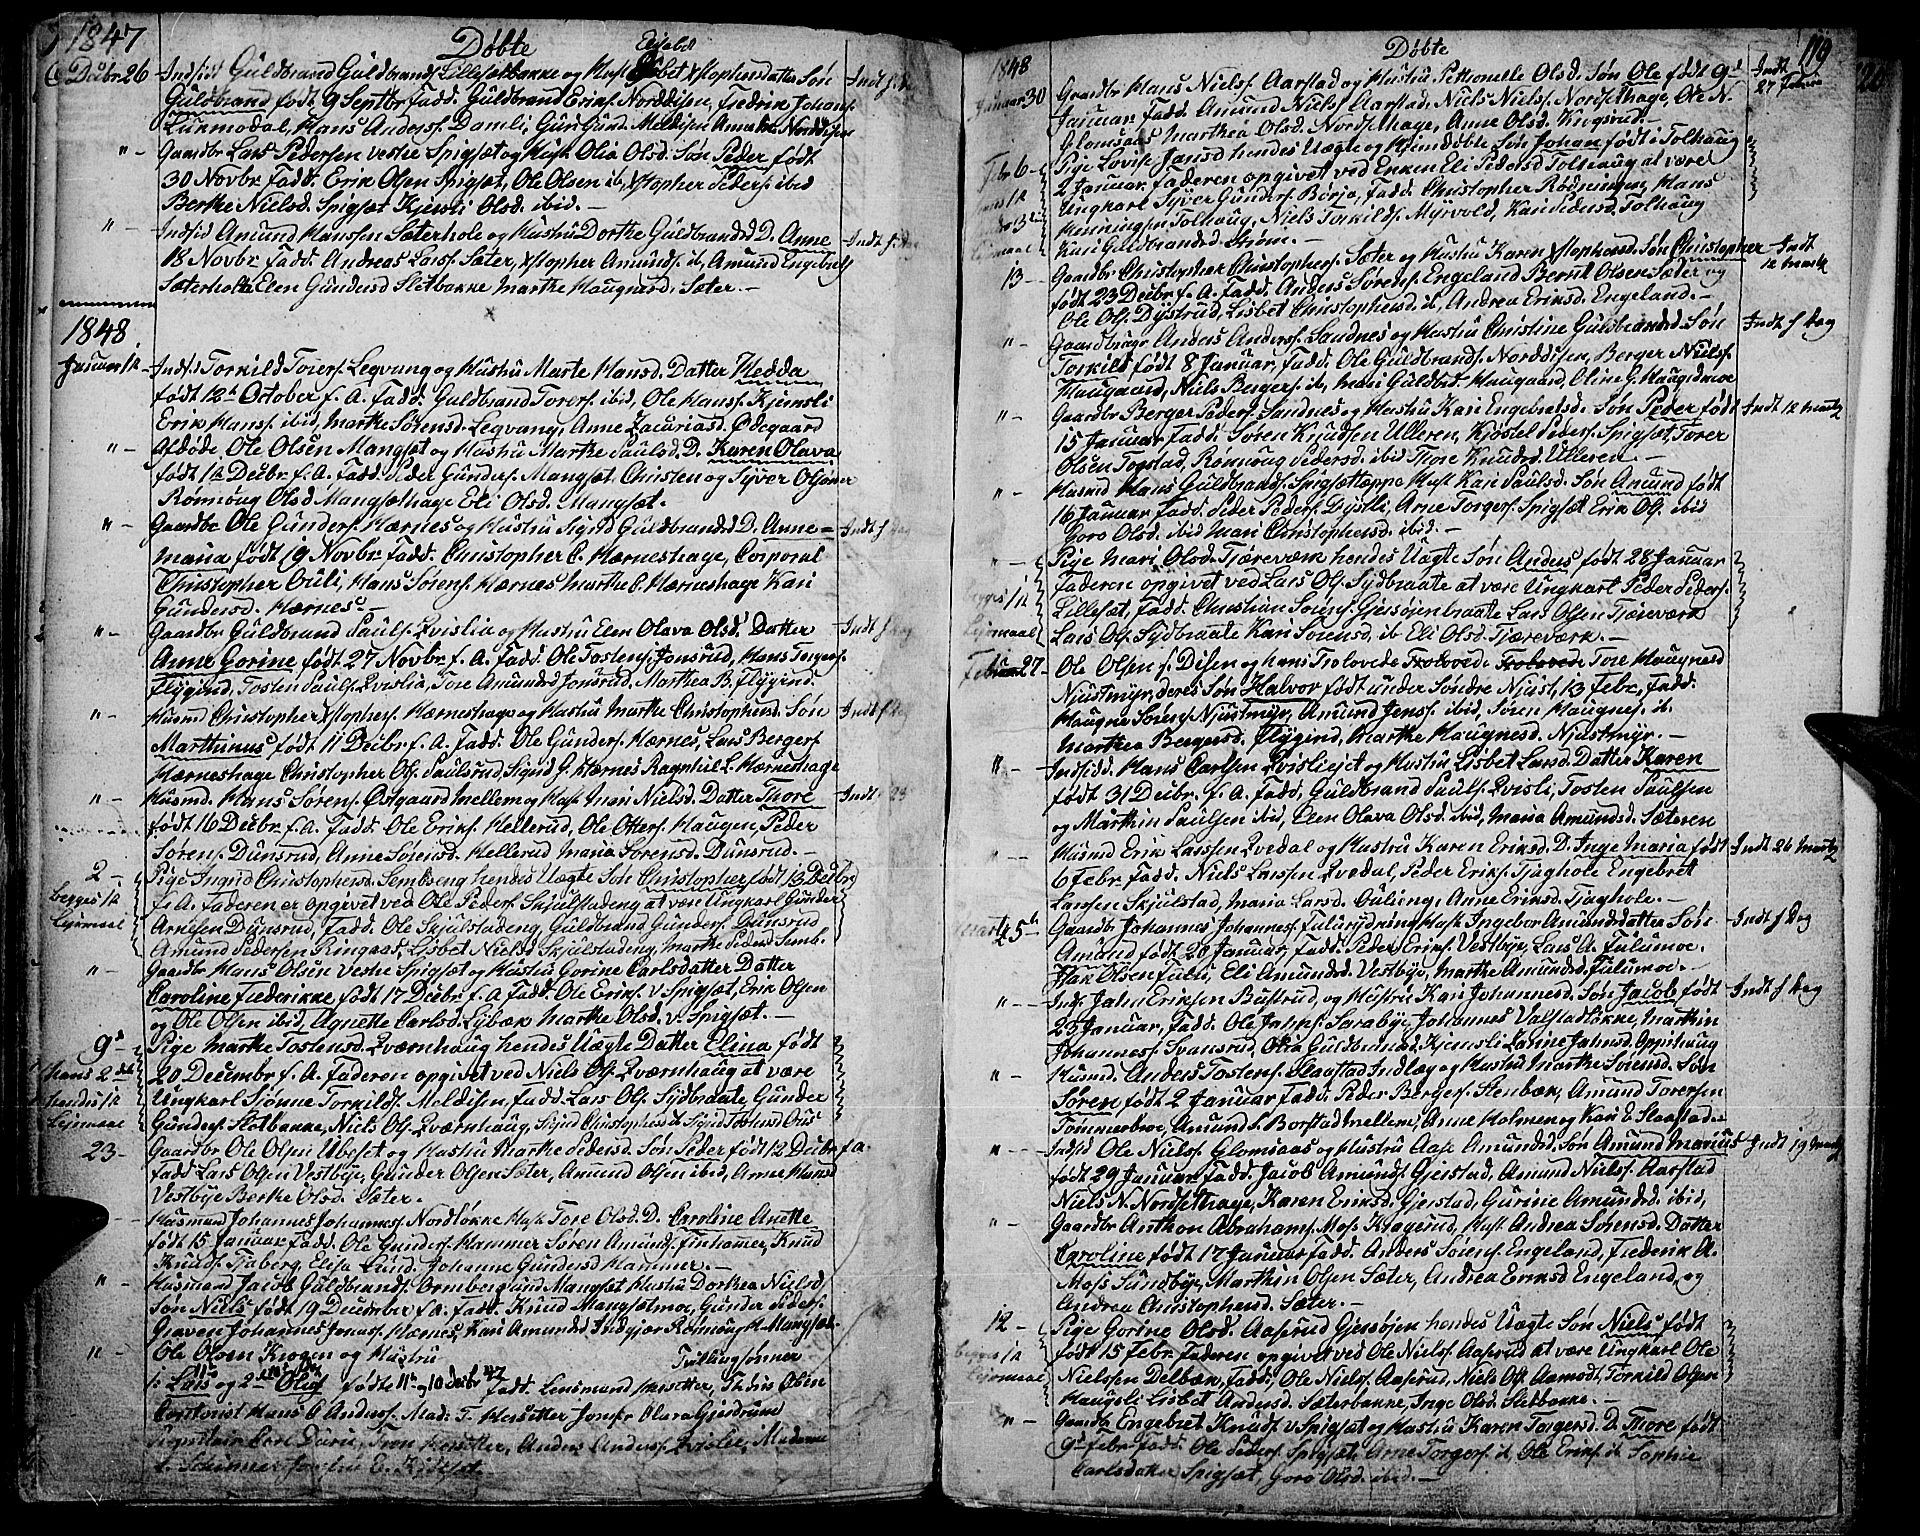 1847
Døbte
Elisabet
Decbr. 26
Indsid Guldbrand Guldbrands. Lillesætbakke og Hust. Xstophersdatter Søn
Guldbrand født 9 Septbr. Fadd. Guldbrand Eriks. Norddisen, Fredrik Johans.
Lurmodal, Hans Anders. Damli, Guri Gund. Meldisen Anne Norddisen
"- Gaardbr Lars Pedersen vestre Spigsæt og Hust. Olia Olsd. Søn Peder født
30 Novbr. Fadd. Erik Olsen Spigsæt, Ole Olsen ib, Xstopher Peders. ibid
Berthe Nielsd. Spigsæt Kjersti Olsd. ibid. -
"- Indsid Amund Hanssen Sæterhole og Hustru Dorthe Guldbrandsd D. Anne
18 Novbr. Fadd. Andreas Lars. Sæter, Xstopher Amunds. ib, Amund Engebrets
Sæterhole Elen Gundersd Sletbakke Marthe Haugnesd. Sæter. -
1848
Januar 1
Inds. Torkild Toers. Legvang og Hustru Marte Hansd. Datter Hedda
født 12 October f. A. Fadd. Guldbrand Torers. ibid, Ole Hans. Kjemsli
Erik Hans. ibid, Marthe Sørensd. Legvang, Anne Zacariasd. Ødegaard
"- Afdøde Ole Olsen Mangsæt og Hustru Marthe Paulsd. D. Karen Olava
født Decbr. f. A. Fadd. Peder Gunders. Mangsæt Christen og Syver Olsønner
Rønnøug Olsd. Mangsæthage Eli Olsd. Mangsæt.
"- Gaardbr Ole Gunders. Hærnes og Hustru Sigrid Guldbrandsd D. Anne=
Maria født 19 Novbr. Fadd. Christopher C. Hærneshage, Corporal
Christopher Ouli, Hans Sørens. Hærnæs Marthe C. Hærneshage Kari
Gundersd. Hærnes. -
"- Gaardbr Guldbrand Pauls. Qvislia og Hustru Elen Olava Olsd. Datter
Anne Gorine født 27 Novbr. f. A. Fadd. Ole Tostens. Jonsrud, Hans Torgers.
Flygind, Tosten Pauls. Qvislia, Tore Amundsd Jonsrud. Marthea B. Flygind.
"- Husmd Christopher Xstophers. Hærneshage og Hustru Marthe Christophersd. Søn
Marthinus født 11 Decbr. f. A. Fadd. Ole Gunders. Hærnes, Lars Bergers
Hærneshage Christopher Ols. Paulsrud, Sigrid G. Hærnes Ragnhil L. Hærneshage
"- Husmd. Hans Sørens. Østgaard mellem og Hust. Mari Nielsd. Datter Thore
født 16 Decbr. f. A. Fadd. Ole Eriks. Hellerud, Ole Otters. Haugen, Peder
Sørens. Dunsrud, Anne Sørensd. Hellerud Maria Sørensd. Dunsrud. -
2 -
begges
Leiermaal
Pige Ingrid Christophersd. Sembseng hendes Uægte Søn Christopher født 13 Decbr
f. A. Faderen er opgivet ved Ole Peders. Skjulstadeng at være Ungkarl Gunder
Arnesen Dunsrud, Fadd. Ole Skjulstadeng, Guldbrand Gunders. Dunsrud
Amund Pedersen Ringaas, Lisbet Nielsd Skjulstadeng, Marthe Pedersd Semb.
"- Gaardbr Hans Olsen vestre Spigsæt og Hustru Gorine Carlsdatter Datter
Caroline Frederikke født 17 Decbr. f. A. Fadd. Ole Eriks. v. Spigsæt, Erik Olsen
og Ole Olsen ibid, Agnette Carlsd. Lybæk Marthe Olsd. v. Spigsæt. -
9
hans 2
Leiermaal
Pige Marthe Tostensd. Qværnhaug hendes Uægte Datter Elina født
20 Decembr. f. A. Faderen opgivet ved Niels Ols. Qværnhaug at være
Ungkarl Sjønne Torkilds. Moldisen, Fadd. Lars Ols. Sydbraate Gunder
Gunders. Sletbakke, Niels Ols. Qværnhaug, Sigrid Christophersd ib
23 - Gaardbr Ole Olsen Ubeset og Hustru Marthe Pedersd. Søn Peder født 12 Decbr f. a.
Fadd. Lars Olsen Vestbye, Gunder Olsen Sæter, Amund Olsen ibid, Anne Hansd
Vestbye Berthe Olsd. Sæter. -
Husmand Johannes Johannes. Nordløkke Hust. Tore Olsd. D. Caroline Anette
født 15 Januar, Fadd. Ole Gunders. Hammer Søren Amunds. Finhammer, Knud
Knuds. Tjaberg, Elisa Lund. Johanne Gundersd Hammer. -
"- Husmand Jacob Guldbrands. Ormberg und. Mangsæt Hustru Dorthea Nielsd
Søn Niels født 19 December f. a. Fadd. Knud Mangsætmoe, Gunder Peders.
Graven Johannes Jonas. Hærnes, Kari Amundsd Indgjær Rønnøug H. Mangsæt.
"- Ole Olsen Krogen og Hustru Tvillingsønner
1: Lars og 2 Oluf fødte 11 og 10 Decbr 47 Fadd. Lensmand Morsetter, Thidis Olsen
Contorist Hans C Anders. Mad: T. Morsetter Jomfr Clara Gjerdrum
Carl Durie, Tron Morsetter, Anders Anders. Qvislie, Madame
1848
Døbte
119
Januar 30
Gaardbr Hans Niels. Aarstad og Hustru Petronelle Olsd. Søn Ole født 9d
Januar Fadd. Amund Niels. Aarstad, Niels Niels. Nordsethage, Ole N.
Glomsaas Marthea Olsd. Nordsethage, Anne Olsd. Krogsrud. -
Indt
27 Febr
Febr 6 -
Leiermaal
Pige Lovise Jansd hendes Uægte og hjemdøbte Søn Johan født i Tolhaug
2 Januar Faderen opgivet ved Enken Eli Pedersd Tolhaug at være
Ungkarl Syver Gunders. Børja, Fadd. Christopher Rødningen, Hans
Henningsen Tolhaug, Niels Torkilds. Myrvold, Kari Pedersd, Tolhaug
Kari Guldbrandsd Strøm. -
13 - Gaardbr Christopher Christophers. Sæter og Hustru Karen Xstophersd. Søn Christopher
født 23 Decbr. f. A. Fadd. Anders Sørens. Engeland Bernt Olsen Sæter og
Ole Ols. Dystrud, Lisbet Christophersd. ib, Andrea Eriksd. Engeland. -
Indt
12 Marts
"- Gaardbruger Anders Anders. Sandnes og Hustru Christine Guldbrandsd Søn
Torkild født 8 Januar, Fadd. Ole Guldbrands. Norddisen, Berger Niels.
Haugaard, Niels Bergers. ib, Mari Guldbrd Haugaard, Oline G. Haugsdmoe
Indt s Dag
"- Gaardbr Berger Peders. Sandnes og Hustru Kari Engebretsd. Søn Peder født
15 Januar, Fadd. Søren Knudsen Ulleren, Kjøstel Peders. Spigsæt, Torer
Olsen Togstad, Rønnoug Pedersd. ibid Thore Knudsd Ulleren. -
Indt 12 Marts
"- Husmd Hans Guldbrands. Spigsættoppe Hust. Kari Paulsd. Søn Amund født
16 Januar, Fadd. Peder Peders. Dystli, Arne Torgers. Spigsæt Erik Ols. ibid
Goro Olsd. ibid Mari Christophersd. ibid. -
"- Pige Mari Olsd. Tjæreværk hendes Uægte Søn Anders født 28 Januar
Faderen opgivet ved Lars Ols. Sydbraate at være Ungkarl Peder Peders.
Lillesæt, Fadd. Christian Sørens. Gjersøjenbraate Lars Olsen Tjæreværk
Lars Ols. Sydbraate Kari Sørensd. ib Eli Olsd. Tjæreværk. -
begges
Leiermaal
Februar 27 - Ole Olsen f. Disen og hans Trolovede Tore Haugnesd
Njustmyr, deres Søn Halvor født under Søndre Njust, 13 Febr, Fadd.
Haugne Sørens. Njustmyr, Amund Jens. ibid, Søren Haugnes. ib.
Marthea Bergersd. Flygind, Marthe Haugnesd. Njustmyr. -
"- Indsidd. Hans Carlsen Qvisliejet og Hustru Lisbet Larsd. Datter Karen
født 31 Decbr. f. A. Fadd, Guldbrand Pauls. Qvisli, Tosten Paulsen
og Marthin Paulsen ibid, Elen Olava Olsd. ibid, Maria Amundsd. Sæteren
"- Husmd Erik Larssen Qvedal og Hustru Karen Eriksd. D. Inge Maria født
6 Febr. Fadd. Niels Larssen Qvedal, Peder Eriks. Tjaghole Engebret
Larssen Skjulstad, Maria Larsd. Ouling, Anne Eriksd. Tjaghole. -
Indt 26 Marts
Marts 5 - Gaardb Johannes Johannes. Fulurydning Hust. Ingebor Amundsdatter Søn
Amund født 20 Januar, Fadd. Peder Eriks. Vestbye, Lars A. Fulumoe.
Isak Olsen Fulu, Eli Amundsd. Vestbye, Marthe Amundsd. Fulumoe. -
Indt s Dag
"- Inds. Jahn Eriksen Bustrud, og Hustru Kari Johannesd. Søn Jacob født
23 Januar, Fadd. Ole Jahns. Saraby, Johannes Valstadløkke, Marthin
Johanness. Svansrud, Olia Guldbrandsd. Kjemsli Lanne Jahnsd. Oppihaug
Indt s Dag
"- Husmd. Anders Tostens. Slaastad Indlæg og Hustru Marthe Sørensd. Søn
Søren født 2 Januar, Fadd. Peder Bergers. Stenbæk, Amund Torersen
Tømmerboe, Amund S. Borstad mellem, Anne Holmen og Kari E. Slaastad.
"- Indsid Ole Niels. Glomsaas og Hustru Aase Amundsd. Søn Amund Marius
født 29 Januar, Fadd. Jacob Amunds. Gjerstad, Amund Niels. Aarstad
Niels N. Nordsethage, Karen Eriksd. Gjerstad, Gurine Amundsd. ibid,
Indt 19 Marts
"- Gaardbr Anthon Abrahams. Moss Kjagerud, Hust. Andrea Sørensd. Datter
Caroline født 17 Januar, Fadd. Anders Sørens. Engeland, Frederik A.
Moss Sundbye, Marthin Olsen Sæter, Andrea Eriksd Engeland, og
Andrea Christophersd. Sæter. -
12 - Pige Gorine Olsd. Aaserud Gjersøjen hendes Uægte Søn Niels født
født 15 Febr. Faderen opgivet ved Ole Niels. Aaserud at være Ungkarl Ole
Nielsen Delbæk, Fadd, Ole Niels. Aaserud, Niels Ols. Aamodt, Torkild Olsen
Haugsli Lisbet Andersd. Sæterbakke, Inge Olsd. Sletbakke. -
begges
Leiermaal
"- Gaardbr Engebret Knuds. v. Spigsæt og Hustru Karen Torgersd. D. Thore født
9d Febr. Fadd. Ole Peders. Spigsæt, Arne Torgers. ib, Ole Eriks. ib Sophie
Carlsdatter Spigsæt, Goro Olsd. ibid. -